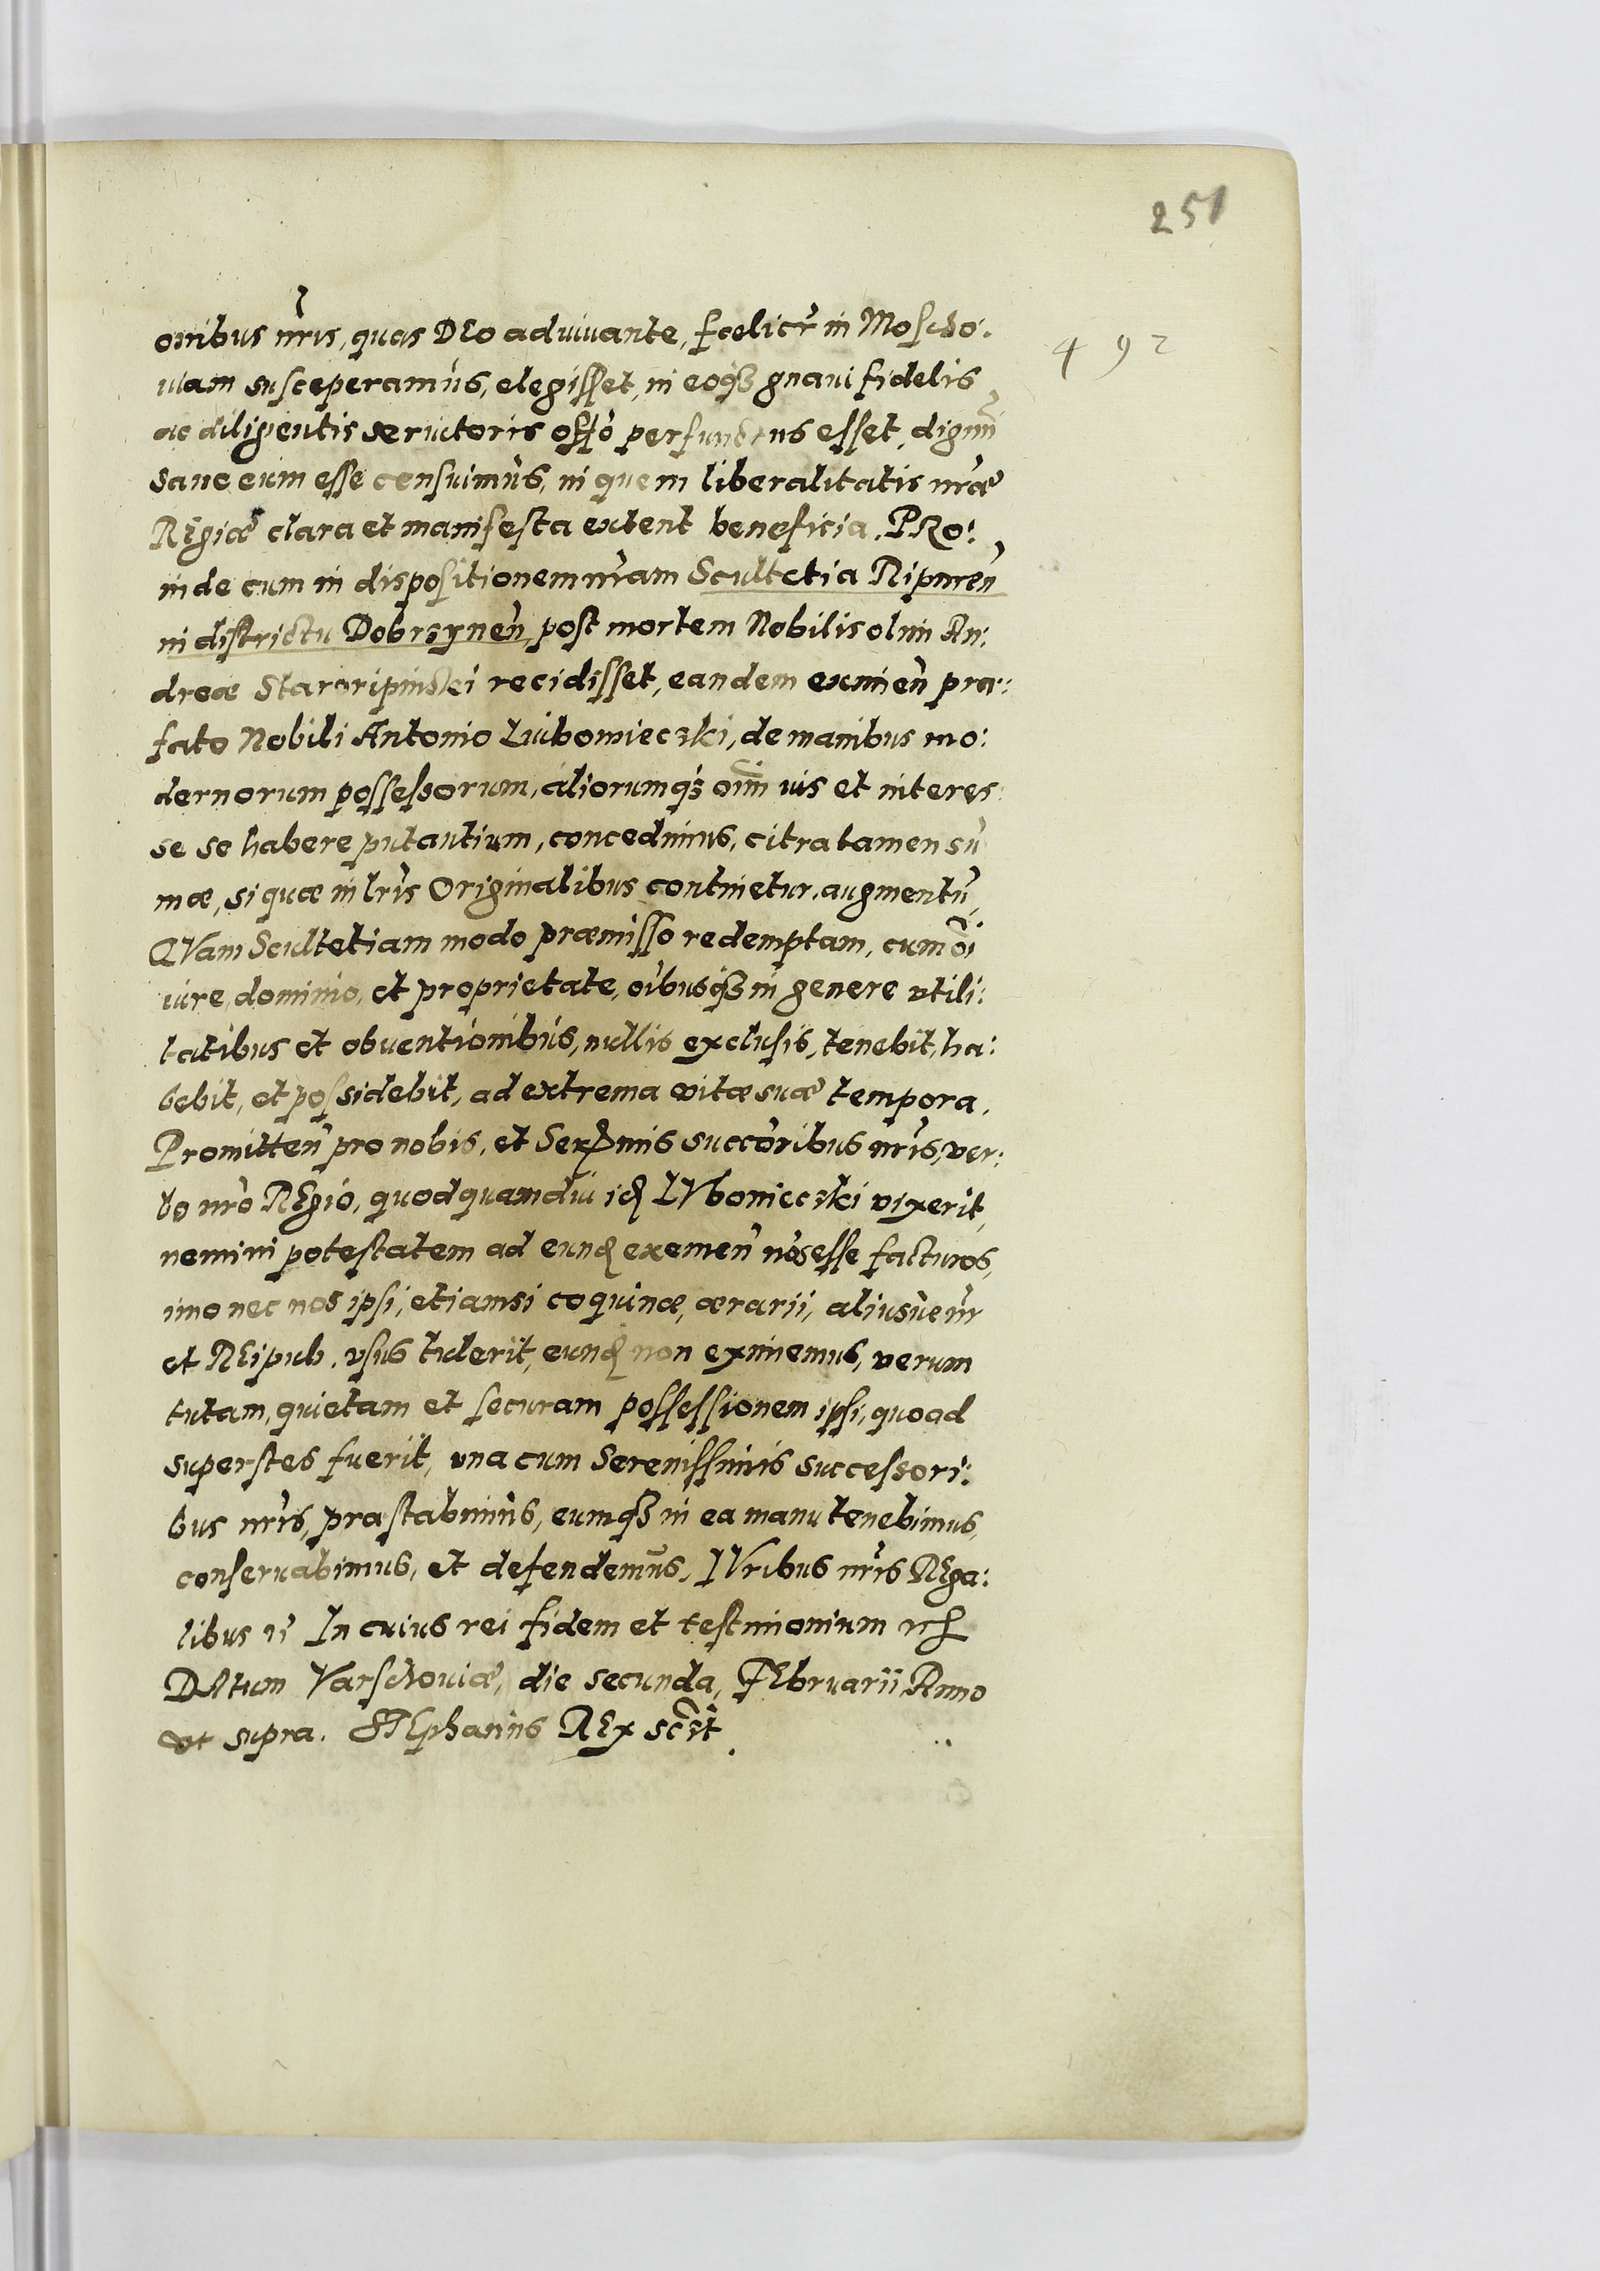 251
492
onibus nr̃is, quas DEo adiuuante, fœlicr̃ in Moscho:
uiam susceperamus, elegisset, in eoq₃ gnaui fidelis
ac diligentis seruitoris offõ perfunctus esset, dignũ
sane eum esse censuimus, in quem liberalitatis nr̃æ
REgiæ clara et manifesta extent beneficia. PRo:
inde cum in dispositionem nr̃am Scultetia Ripineñ
in districtu Dobrzyneñ, post mortem Nobilis olim An:
dreæ Staroripinski recidisset, eandem eximeñ præ:
fato Nobili Antonio Lubomieczki, de manibus mo:
dernorum possessorum, aliorumq₃ oĩm ius et interes:
se se habere putantium, concedimus, citra tamen sũ
mæ, si quæ in lr̃is Originalibus continetur, augmentũ,
QVam Scultetiam modo præmisso redemptam, cum oĩ
iure, dominio, et proprietate, oĩbusq₃ in genere vtili:
tatibus et obuentionibus, nullis exclusis, tenebit, ha:
bebit, et possidebit, ad extrema vitæ suæ tempora,
Promitteñ pro nobis, et Serẽmis succoribus nr̃is, ver:
bo nr̃o REgio, quod quamdiu idẽ LVbomieczki vixerit,
nemini potestatem ad eund̃ exemeñ nos esse facturos,
imo nec nos ipsi, etiamsi coquinæ, ærarii, aliusue nr̃
et REipub. vsus tulerit, eund̃ non eximemus, verum
tutam, quietam et securam possessionem ipsi, quoad
superstes fuerit, vna cum Serenissimis successori:
bus nr̃is, præstabimus, eumq₃ in ea manu tenebimus,
conseruabimus, et defendemus, IVribus nr̃is REga:
libus In cuius rei fidem et testimonium
DAtum Varschouiæ, die secunda, FEbruarii, Anno
vt supra. STEphanus REx sc̃sit